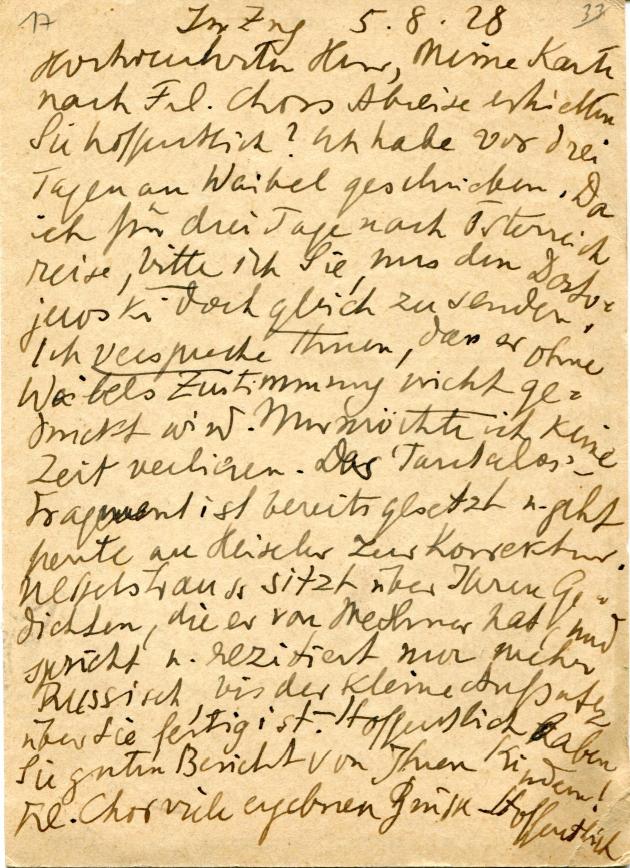 17 33
Im Zug 5.8.28
Hochverehrter Herr, Meine Karte
nach Frl. Chors Abreise erhielten
Sie hoffentlich? Ich habe vor drei
Tagen an Waibel geschrieben. Da
ich für drei Tage nach Österreich
reise, bitte ich Sie, uns den Dosto-
jewski doch gleich zu senden.
Ich verspreche Ihnen, dass er ohne
Waibels Zustimmung nicht ge-
druckt wird. Nur möchte ich keine
Zeit verlieren. Das Tantalos-
Fragment ist bereits gesetzt u. geht
heute an Heiseler zur Korrektur.
sitzt über Ihren Ge-
dichten, die er von Mechner hat, und
spricht u. rezitiert nur mehr
Russisch, bis der kleine Aufsatz
über Sie fertig ist. Hoffentlich haben
Sie guten Bericht von Ihren Kindern!
Frl. Chor viele ergebenen Grüsse. Hoffentlich